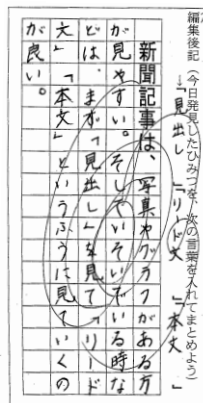 編集後記（今日発見したひみつを、次の言葉を入れてまとめよう）
→「見出し」「リード文」「本文」
新聞記事は、写真やグラフがある方
が見やすい。そしていそいでいる時な
どは、まず「見出し」を見て「リード
文」「本文」というふうに見ていくの
が良い。